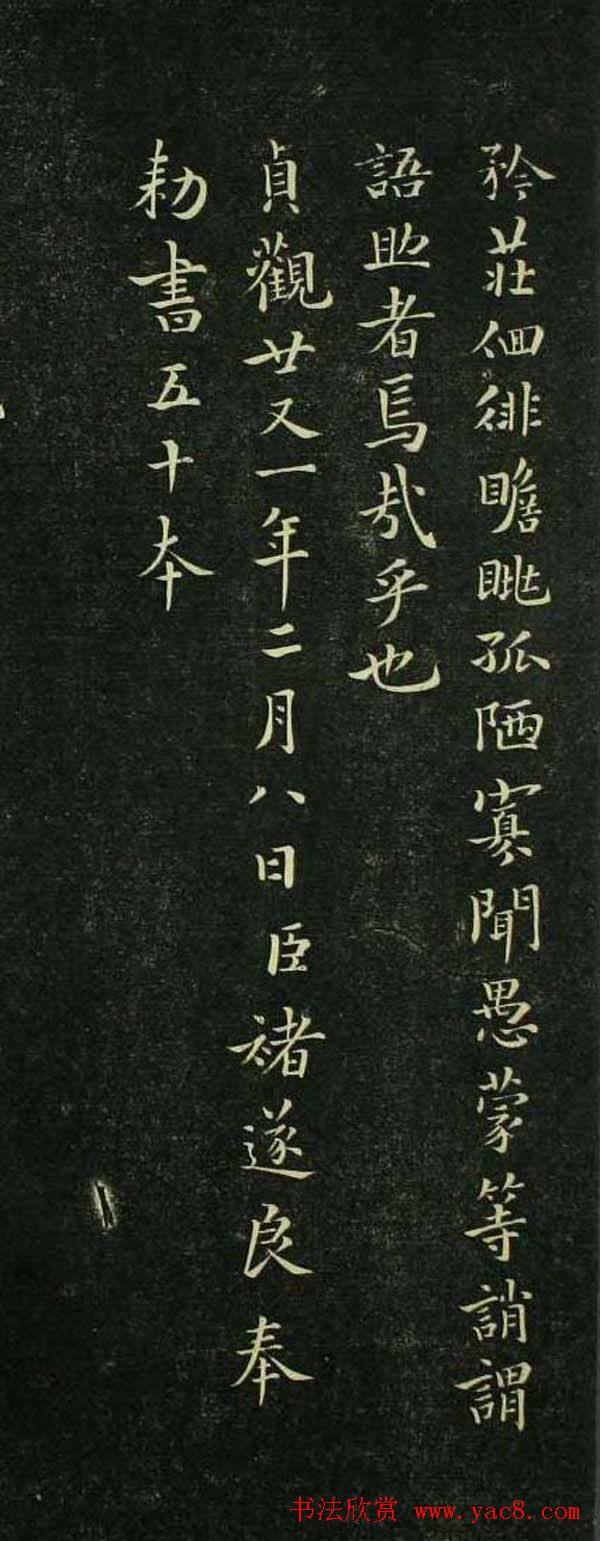 矜莊佪徘瞻眺孤陋寡聞愚蒙等誚謂
語助者焉哉乎也
貞觀廿又一年二月八日臣褚遂良奉
勑書五十本
书法欣赏 www.yac8.com